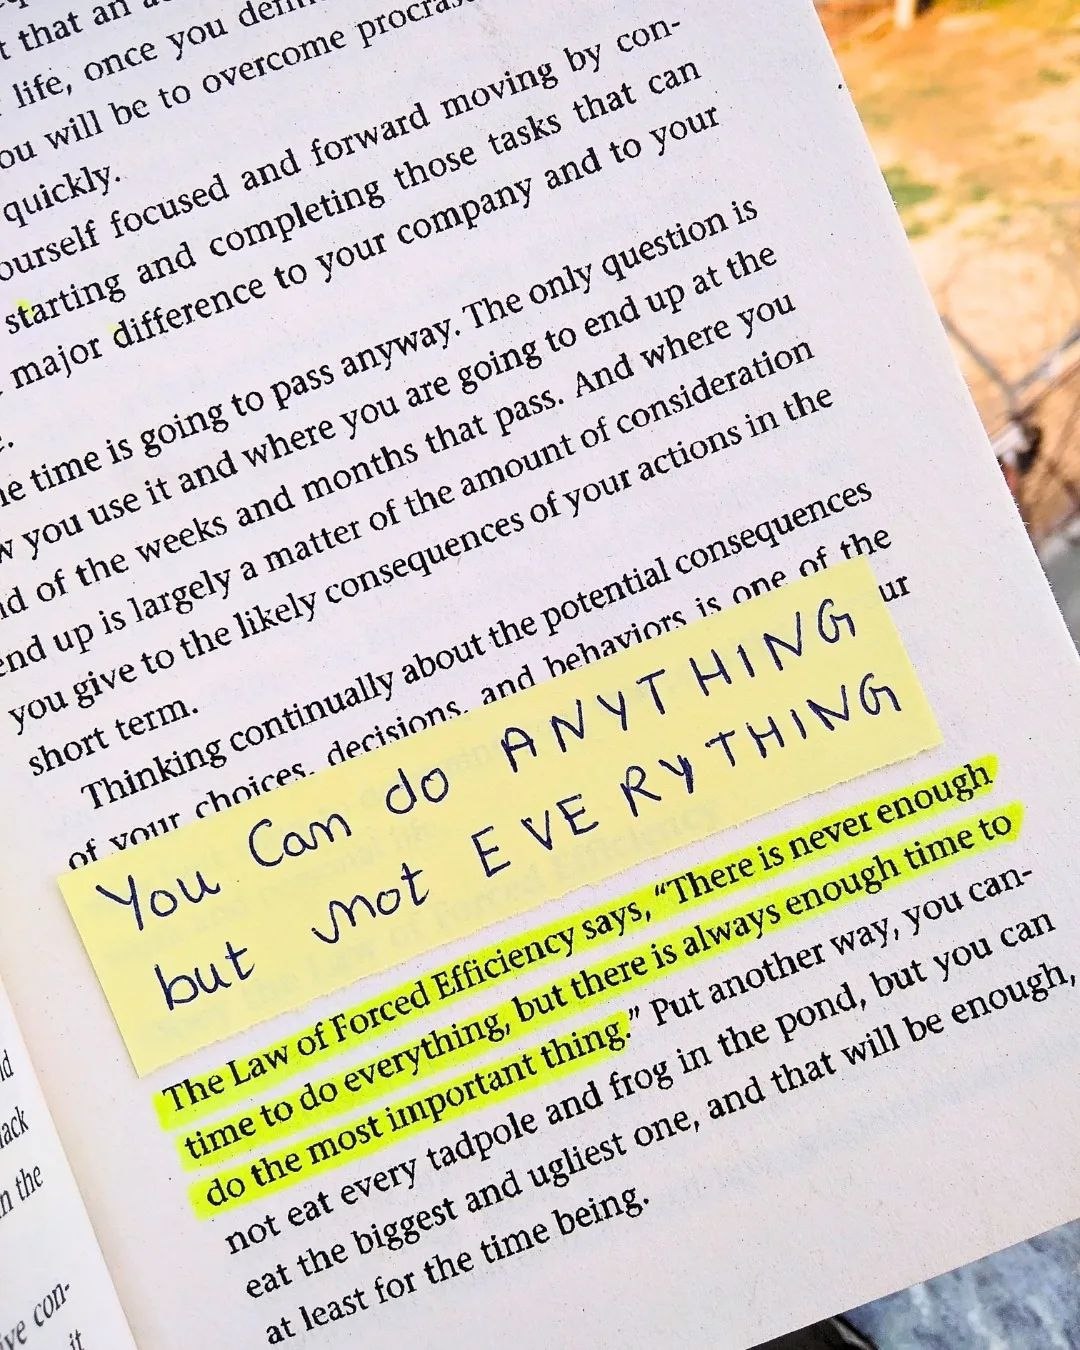 t that an
life, once you
ou will be to overcome
quickly.
ourself focused and forward moving by con-
starting and completing those tasks that can
major difference to your company and to your
e time is going to pass anyway. The only question is
you use it and where you are going to end up at the
of the weeks and months that pass. And where you
end up is largely a matter of the amount of consideration
you give to the likely consequences of your actions in the
short term.
Thinking continually about the potential consequences
of your choices, decisions, and behaviors is one of the
ur
You Can do ANYTHING
but not EVERYTHING
The Law of Forced Efficiency says, “There is never enough
time to do everything, but there is always enough time to
do the most important thing.” Put another way, you can-
not eat every tadpole and frog in the pond, but you can
eat the biggest and ugliest one, and that will be enough,
at least for the time being.
lack
n the
ve con-
it